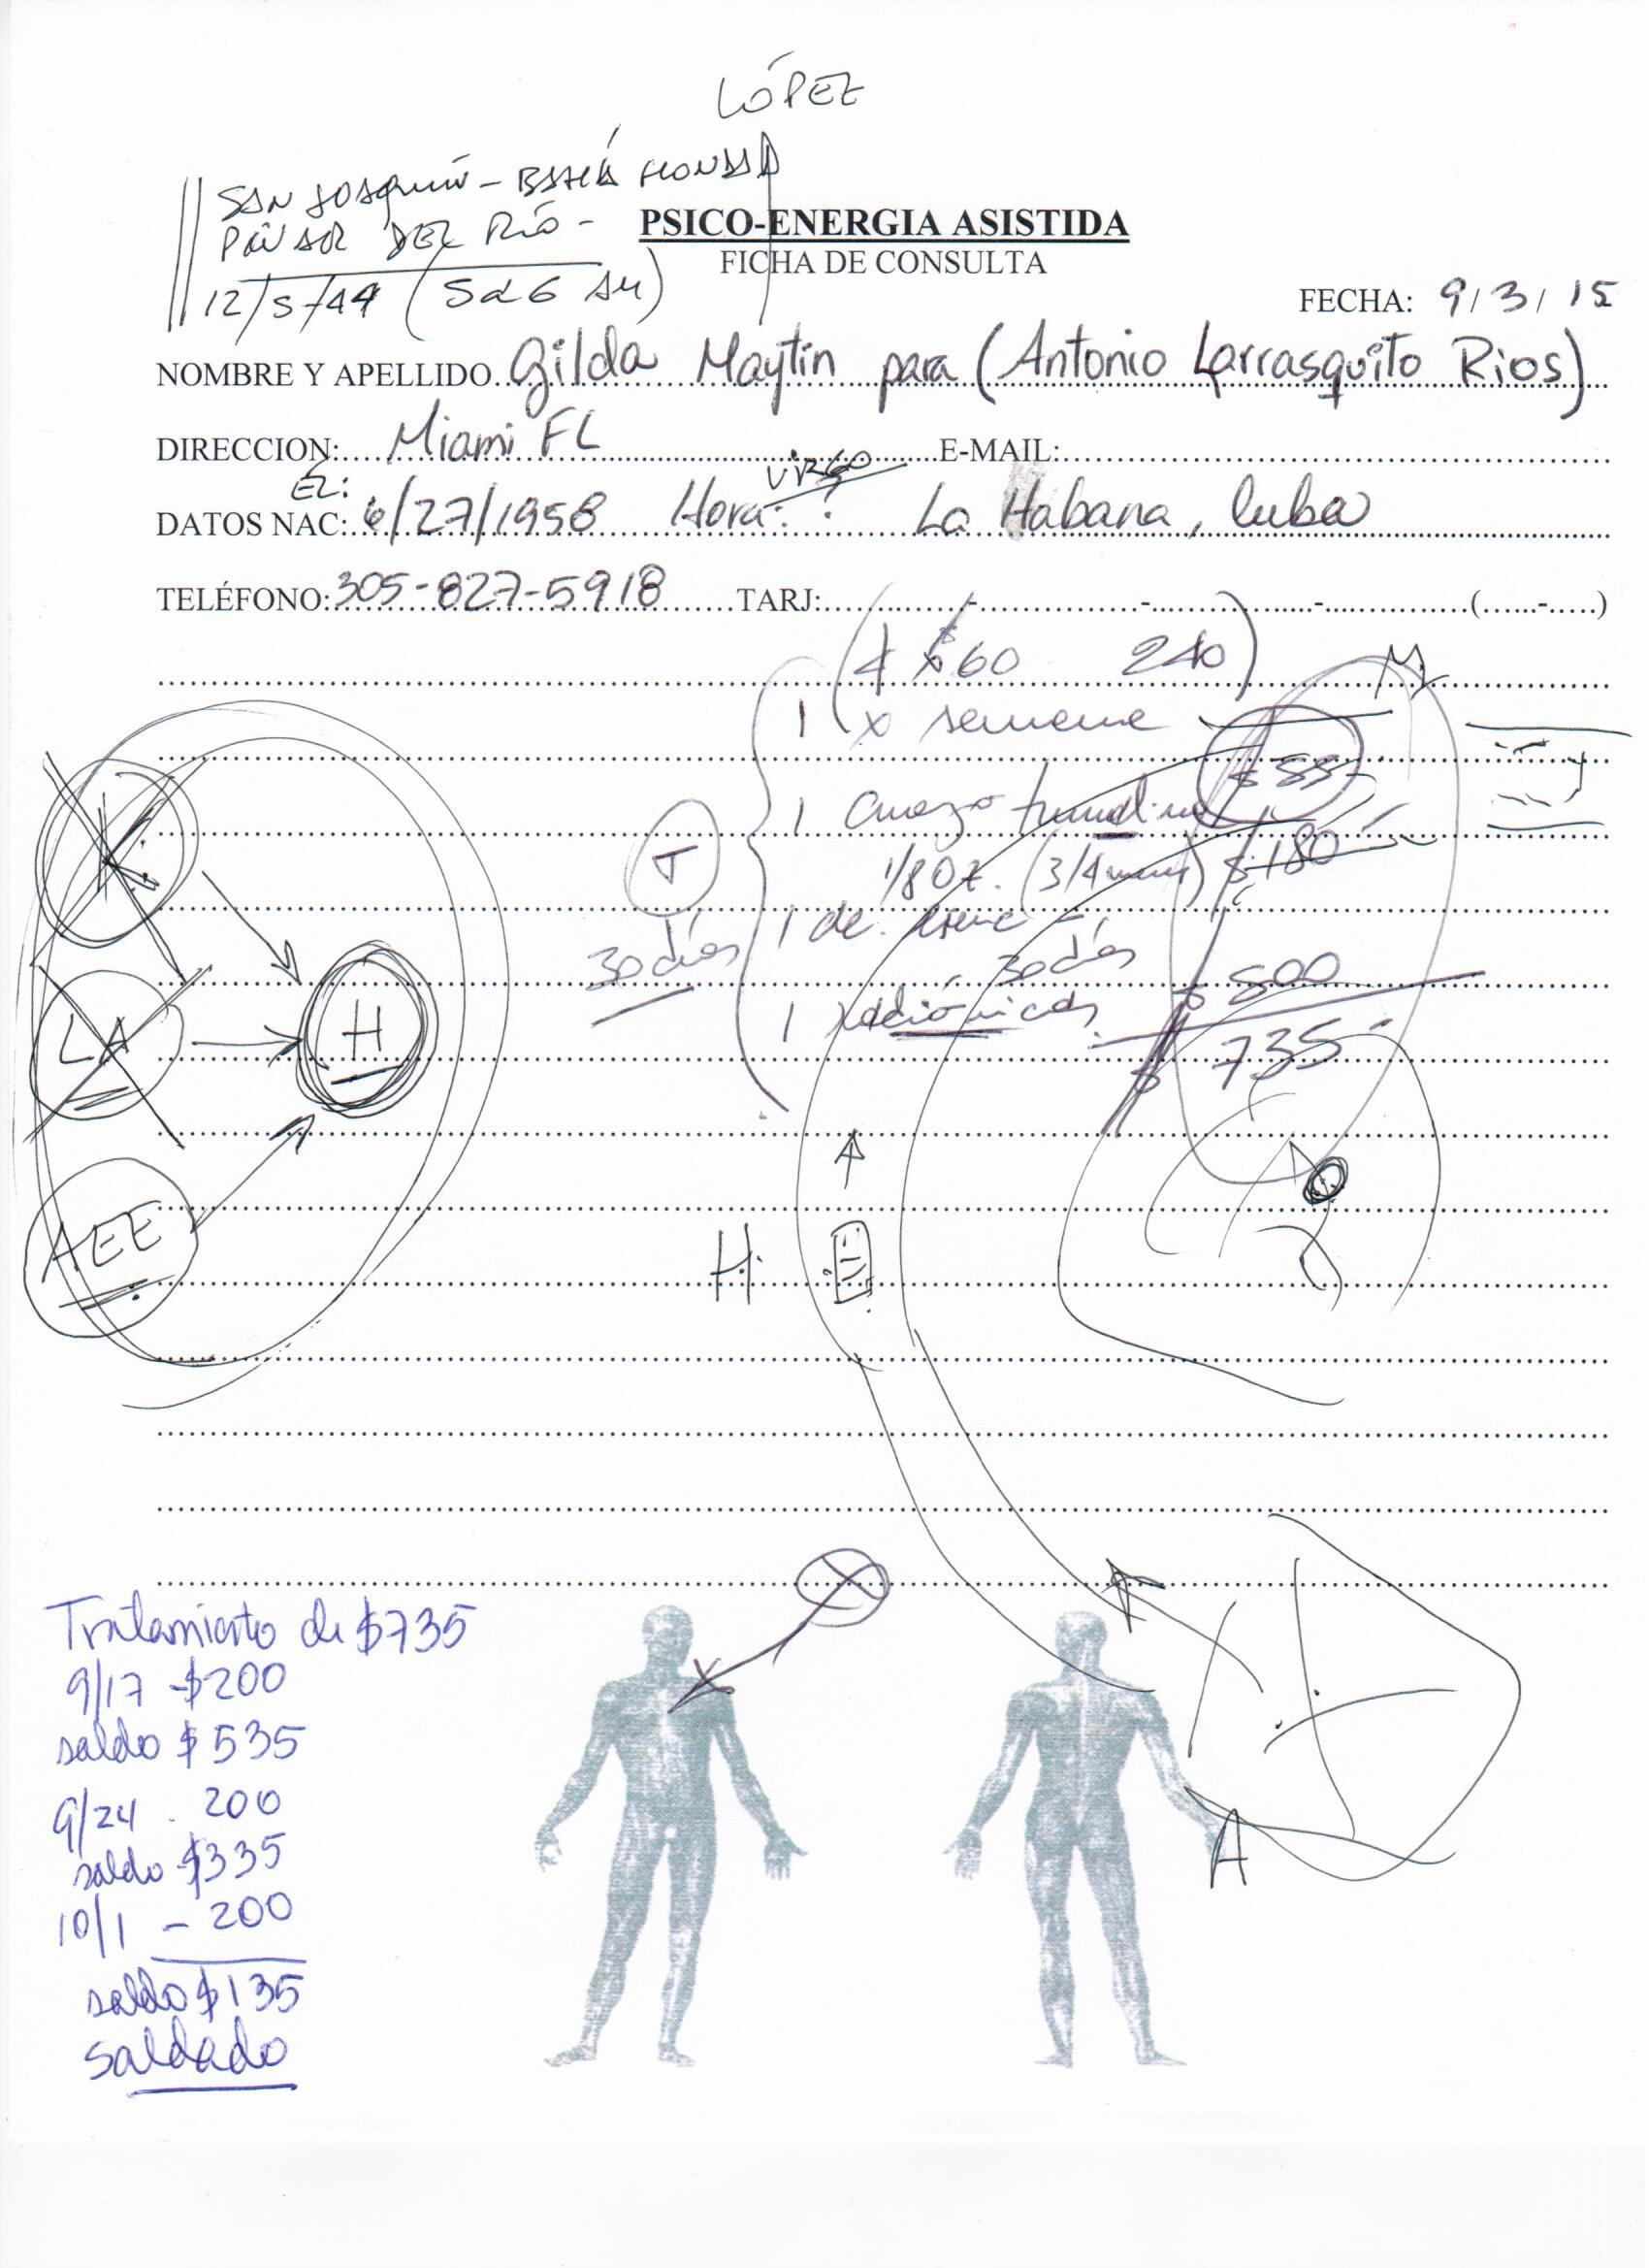 LÓPEZ
SAN JOAQUÍN - BAHÍA HONDA
PINAR DEL RÍO -
12/5/44 (5 a 6 AM)
PSICO-ENERGIA ASISTIDA
FICHA DE CONSULTA
FECHA: 9/3/15
NOMBRE Y APELLIDO Gilda Maytin para (Antonio Larrasquito Rios)
DIRECCION: Miami FL E-MAIL:
EL: VIRGO
DATOS NAC: 6/27/1958 Hora: ? La Habana, Cuba
TELÉFONO: 305-827-5918 TARJ: - - - (......-.....)
(4 x $60 240)
M
1 x semana
1 Cuarzo $55
1/8 oz. (3/4 ) $180
T
1 de
30 días 30 días
$500
1 radiónicas
$735
LA
H
AEE
H
Tratamiento de $735
9/17 - $200
saldo $535
9/24 . 200
saldo $335
10/1 - 200
saldo $135
saldado
A